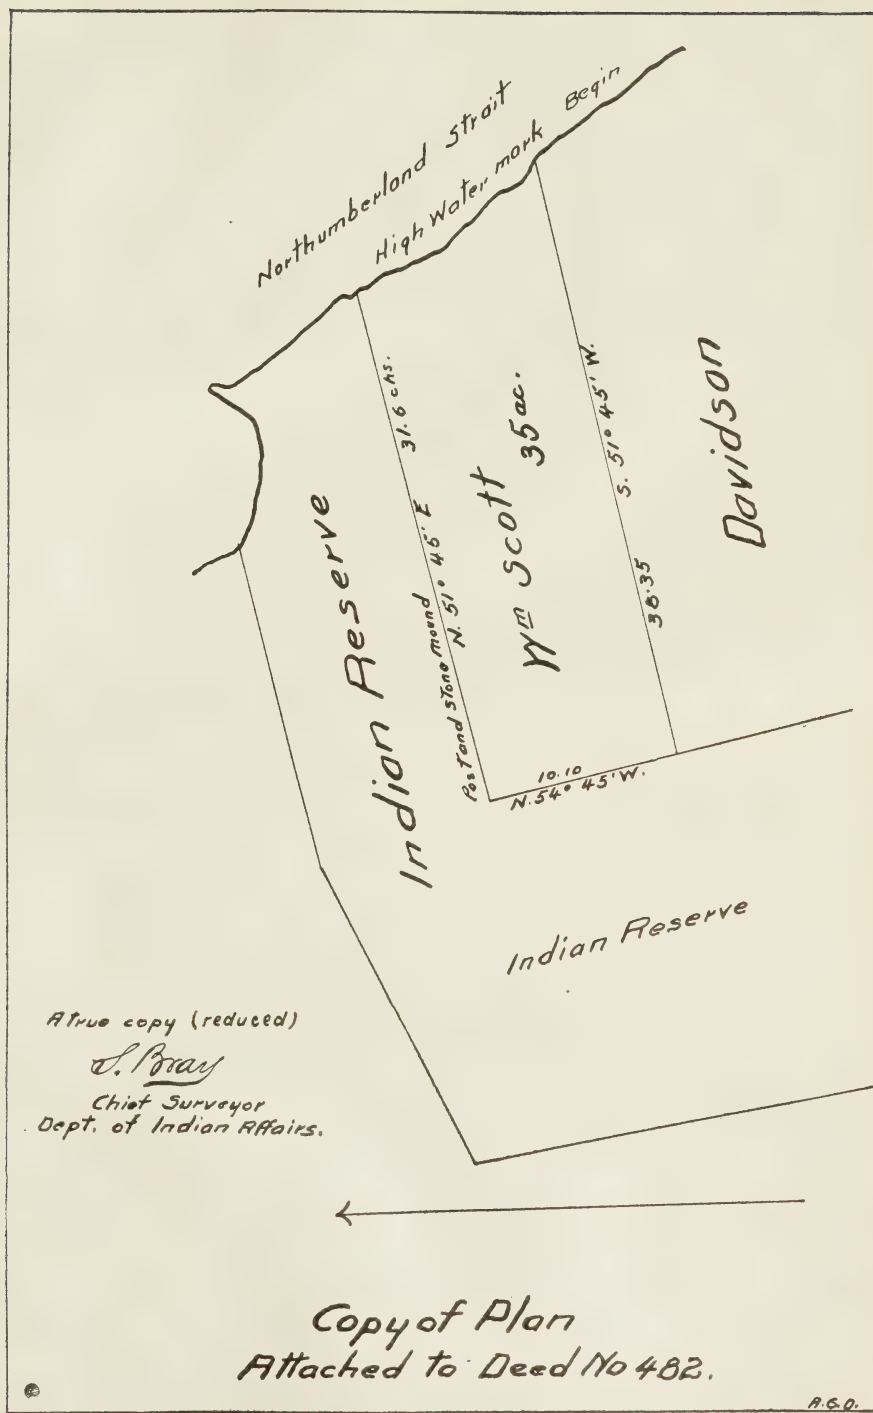 Northumberland Strait
High Water mark Begin
31.6 chs.
N. 51° 45' E
Post and stone mound
Indian Reserve
Wm Scott 35 ac.
S. 51° 45' W.
38.35
Davidson
10.10
N. 54° 45' W.
Indian Reserve
A true copy (reduced)
S. Bray
Chief Surveyor
Dept. of Indian Affairs.
Copy of Plan
Attached to Deed No 482.